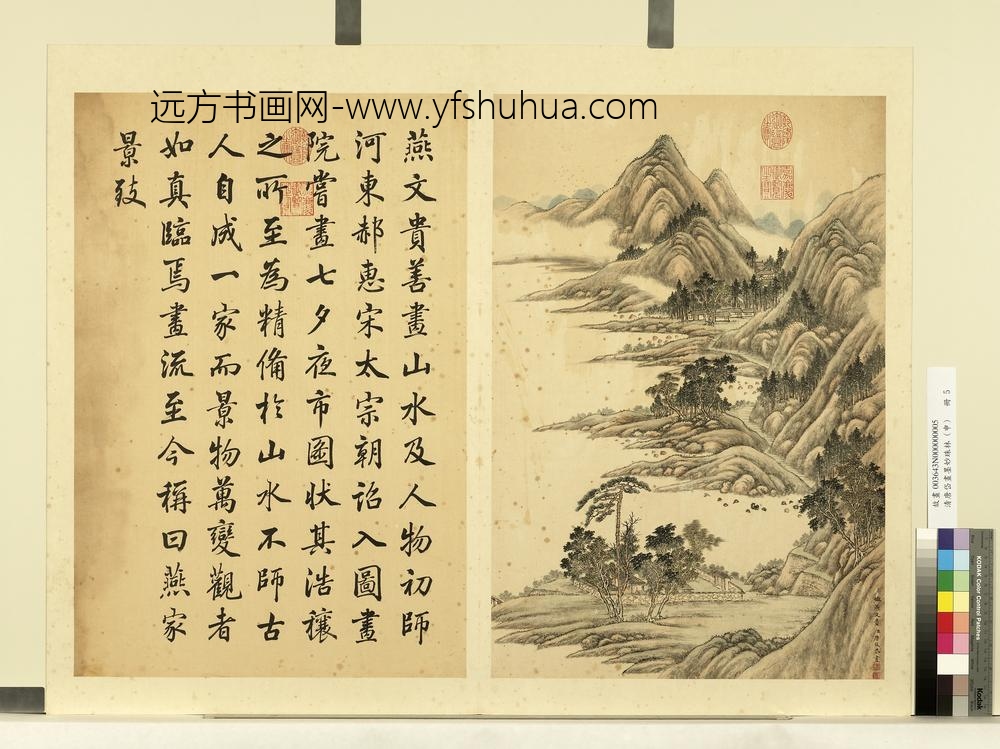 远方书画网-www.yfshuhua.com
燕文貴善畫山水及人物初師
河東郝惠宋太宗朝詔入圖畫
院嘗畫七夕夜市圖狀其浩穰
之所至為精備於山水不師古
人自成一家而景物萬變觀者
如真臨焉畫流至今稱曰燕家
景致
故畫003643N000000005
清唐岱畫墨妙珠林(申) 冊 5
KODAK Color Control Patches
Kodak